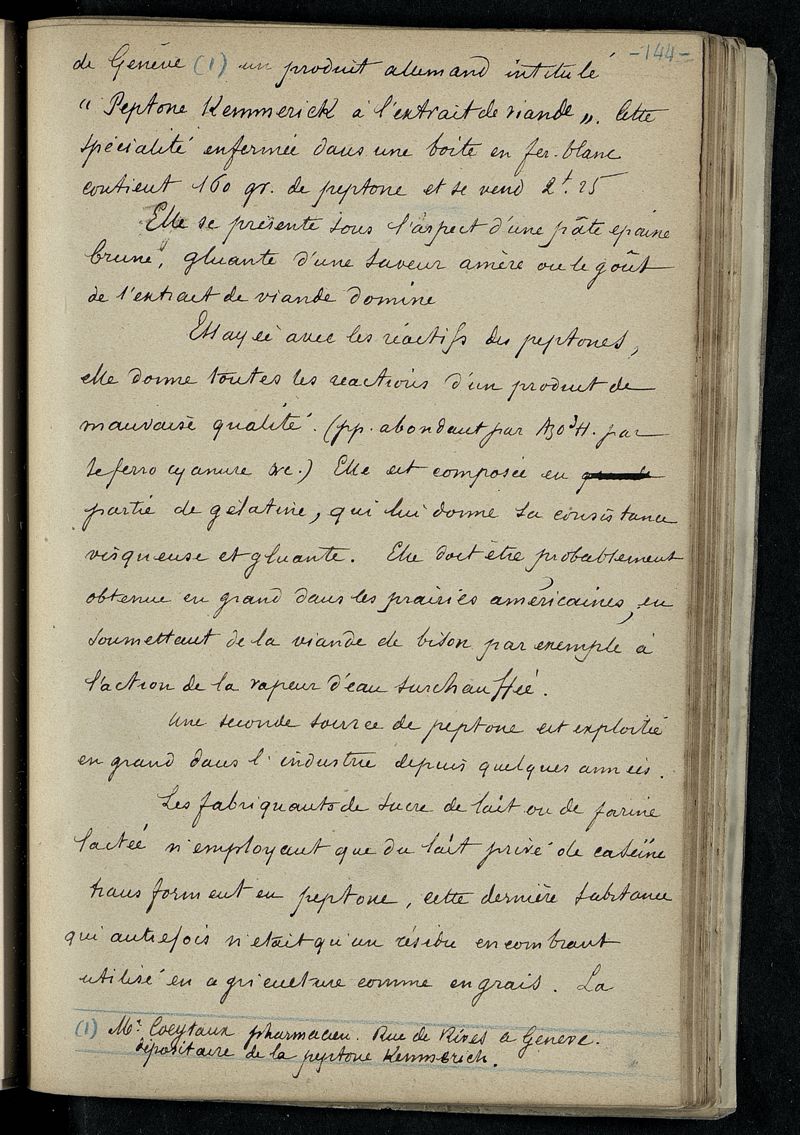 -144-
de Genève (1) un produit allemand intitulé
“ Peptone Kemmerick à l'extrait de viande „. Cette
spécialité enfermée dans une boite en fer-blanc
contient 160 gr. de peptone et se vend 2f.25
Elle se présente sous l'aspect d'une pâte epaisse
brune, gluante d'une saveur amère ou le goût
de l'extrait de viande domine
Essayée avec les réactifs des peptones,
elle donne toutes les reactions d'un produit de
mauvaise qualité. (pp. abondant par AzO³H. par
le ferro cyanure &c.) Elle est composée en grande
partie de gélatine, qui lui donne sa consistance
visqueuse et gluante. Elle doit être probablement
obtenue en grand dans les prairies américaines, en
soumettant de la viande de bison par exemple à
l'action de la vapeur d'eau surchauffée.
Une seconde source de peptone est exploitée
en grand dans l'industrie depuis quelques années.
Les fabriquants de sucre de lait ou de farine
lactée n'employant que du lait privé de caséine
transforment en peptone, cette dernière substance
qui autrefois n'etait qu'un résidu encombrant
utilisé en agriculture comme engrais. La
(1) Mr. Coeytaux pharmacien. Rue de Rives a Geneve.
dépositaire de la peptone Kemmerich.